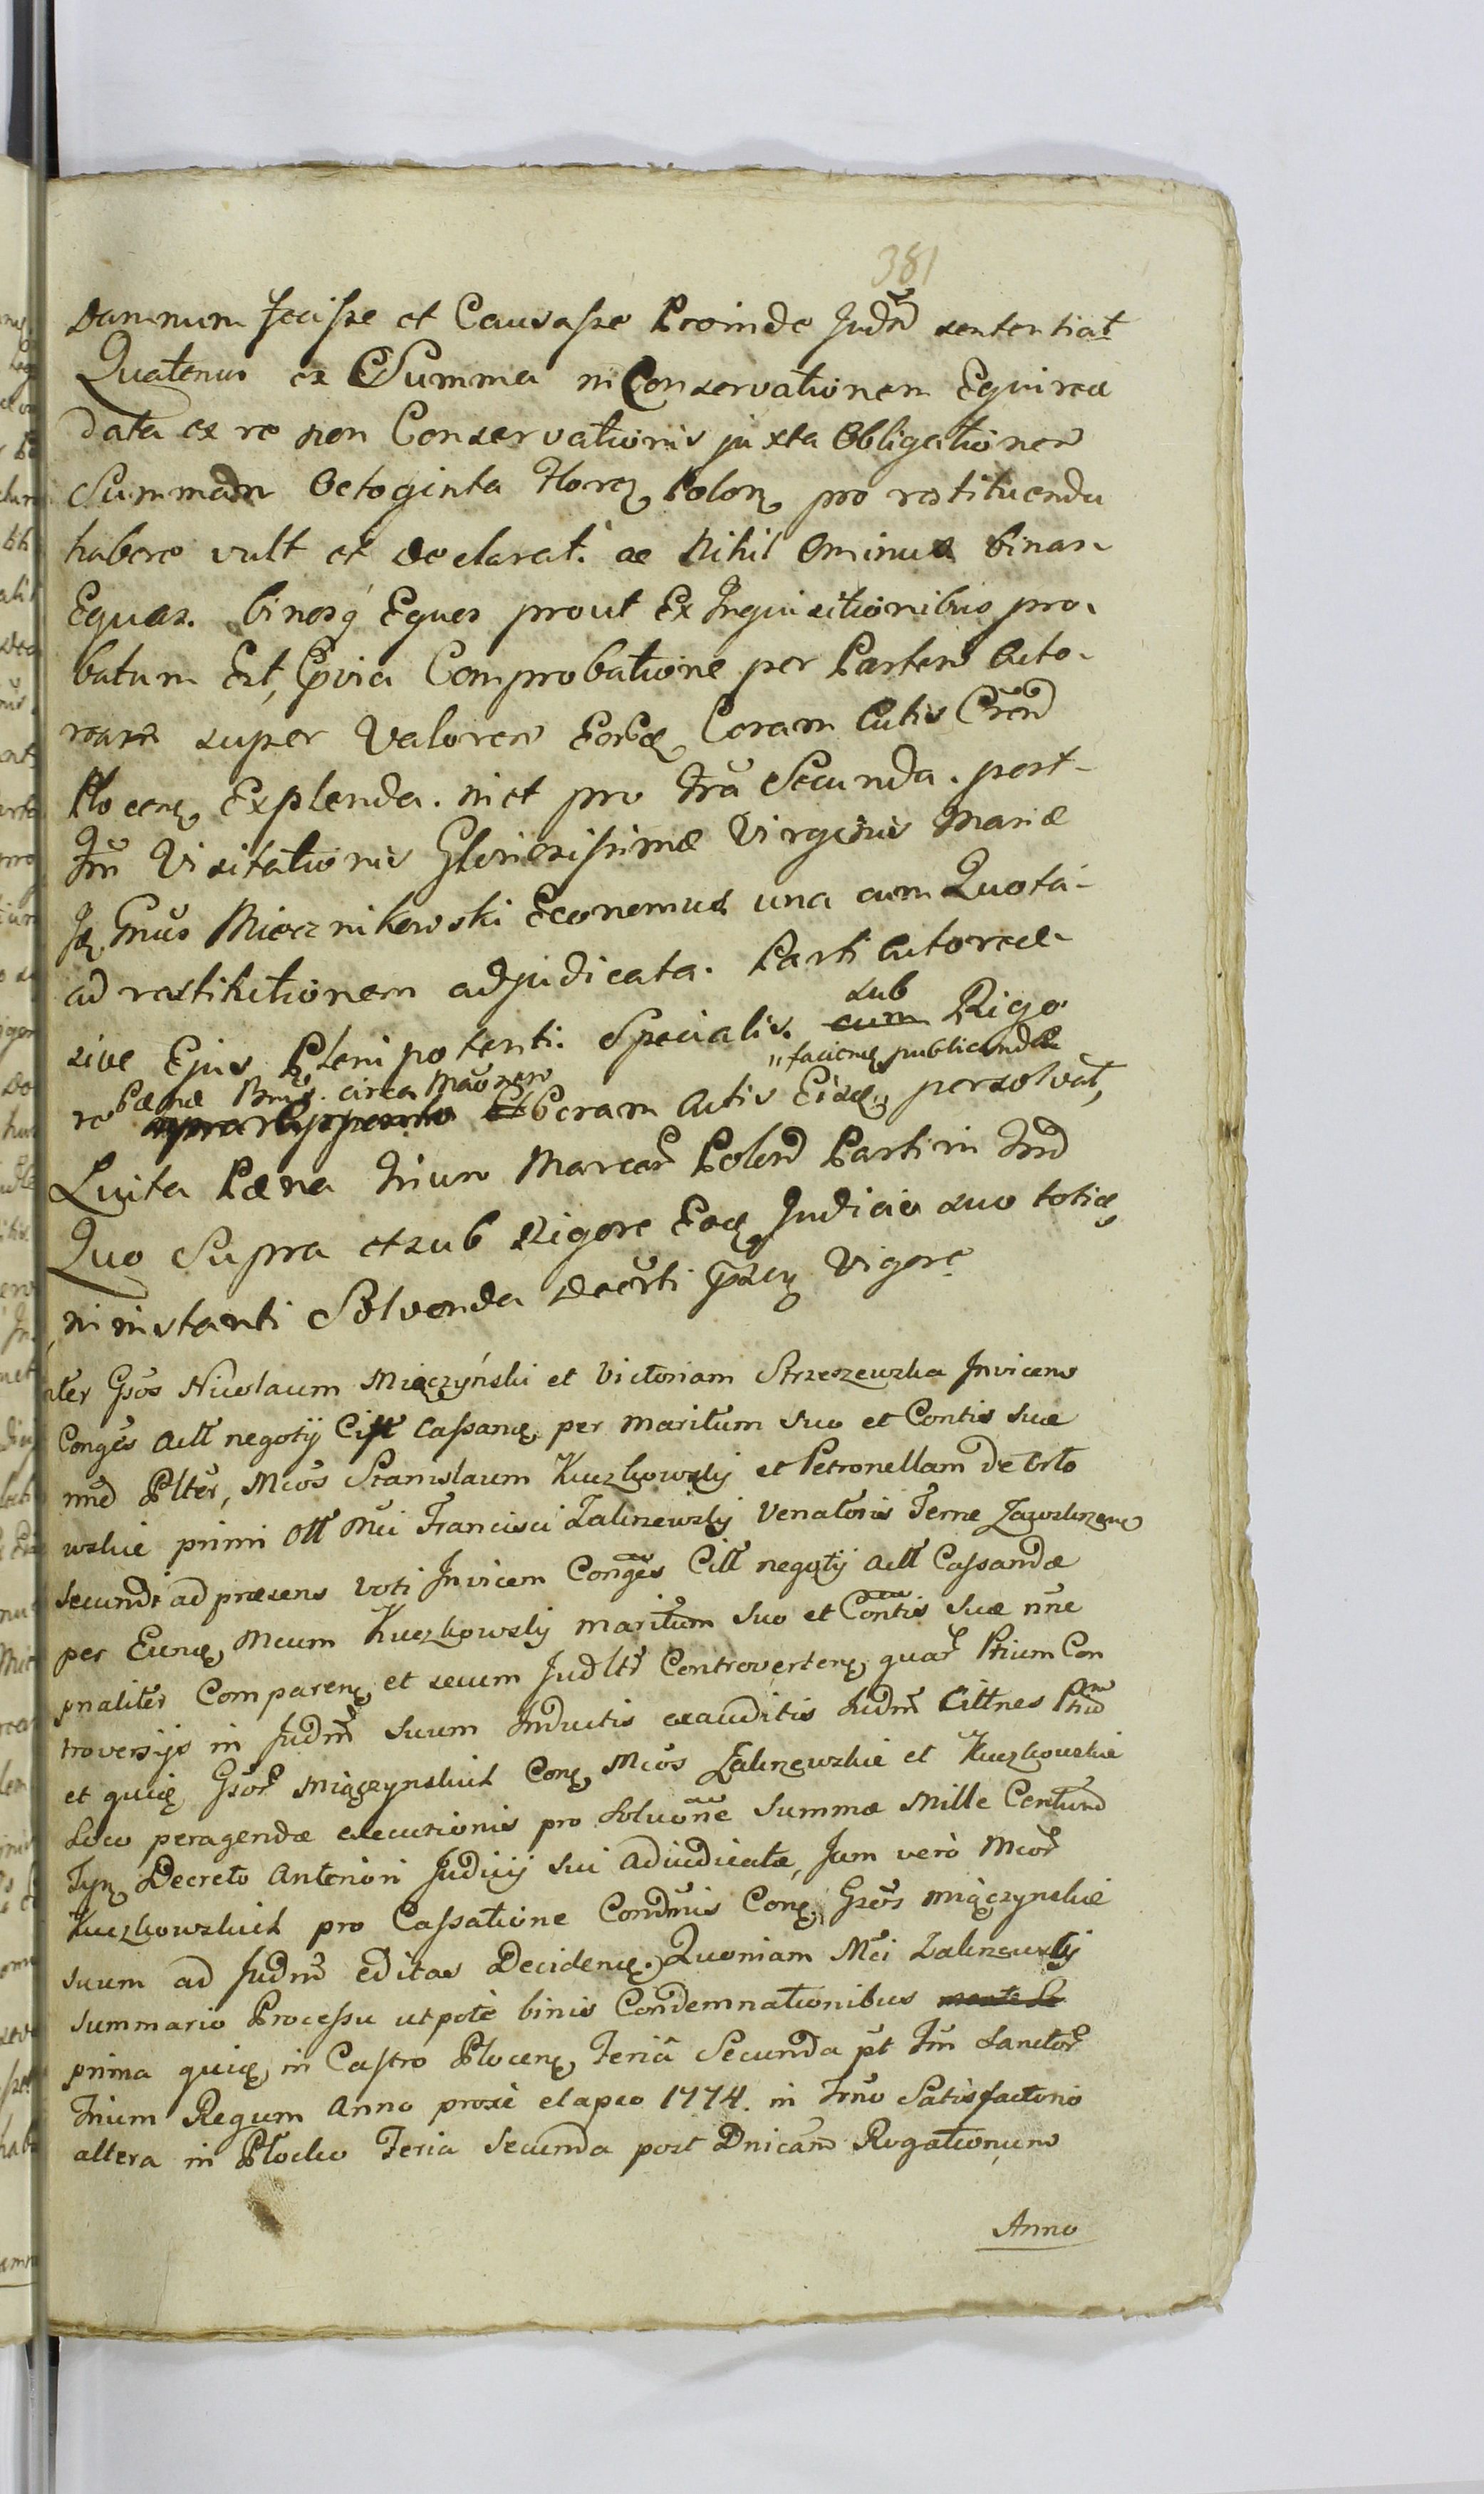 381
Damnum fecisse et Causasse Proinde Judm̃ sententiat
Quatenus ex Summa in Conservationem Equirea
data ex re non Conservationis juxta Obligationem
Summam Octoginta Floreꝝ Polonꝝ pro restituenda
habere vult et declarat. ac Nihil Ominus binas
Equas. binosq́ Equos prout Ex Inquisitionibus pro-
batum Est, Ppvia Comprobatione per Partem Acto-
ream super Valorem Eorꝝ Coram Actis
Plocenꝝ Explenda. in et pro Fra Secunda. post-
tm̃ Visitationis Gloriosissimæ Virginis Mariæ
Gnus̃ Miecznikowski Economus una cum Quota-
ad restitutionem adjudicata. Parti Actoreæ-
sub
sive Ejus Plenipotenti. Speciali. cum Rigo
faciene publicandæ
Pænæ Bnis̃. circa
re Coram Actis persolvat,
Luita Pæna trium Marcar̃ Polon̄ Parti in
Quo Supra et sub Rigore Judicio suo toties
in instanti Solvenda Decr̃ti Vigore
nter Gsos̃ Nicolaum Miączyński et Victoriam Strzeszewska Invicem
Conges̃ Actt negotij Citt Cassane per maritum suo et Contis suæ
nn̄e Plter, Mcos̃ Stanislaum Kuczkowskij et Petronellam de Orło
wskie primi Ott Mci Francisci Zalizewskij Venatoris Terræ Zawskrzene
secundi ad præsens voti Invicem Conges̃ Citt negotij Actt Cassandæ
per Eunꝝ Mcum Kuczkowskij maritum suo et Contis suæ nn̄e
pnaliter Comparenꝝ et secum Judltr̃ Controvertenꝝ quar̃ Ptium Con
troversijs in Judm̃ suum Inductis exauditis Judm̃ Citnes Ptium
et quiꝝ Gsor̃ Miączynskich Conꝝ Mcos̃ Zalizewskie et Kuczkowskie
Loco peragendæ executionis pro Soluone Summæ Mille Centum
Decreto Anteriori Judicij sui Adiudicatæ, Jam verò Mcor̃
Kuczkowskich pro Cassatione Condmis Conꝝ Gsos̃ Miączynskie
suum ad Judm̃ editas Decidenꝝ. Quoniam Mci Zalizewskij
summario Processu utpotè binis Condemnationibus
prima quiꝝ in Castro Plocenꝝ Feriâ Secunda pt Fm̃ Sanctor̃
Trium Regum Anno proxẽ elapso 1774. in trno Satisfactorio
altera in Płocko Feria Secunda post Dnicam Rogationum
Anno